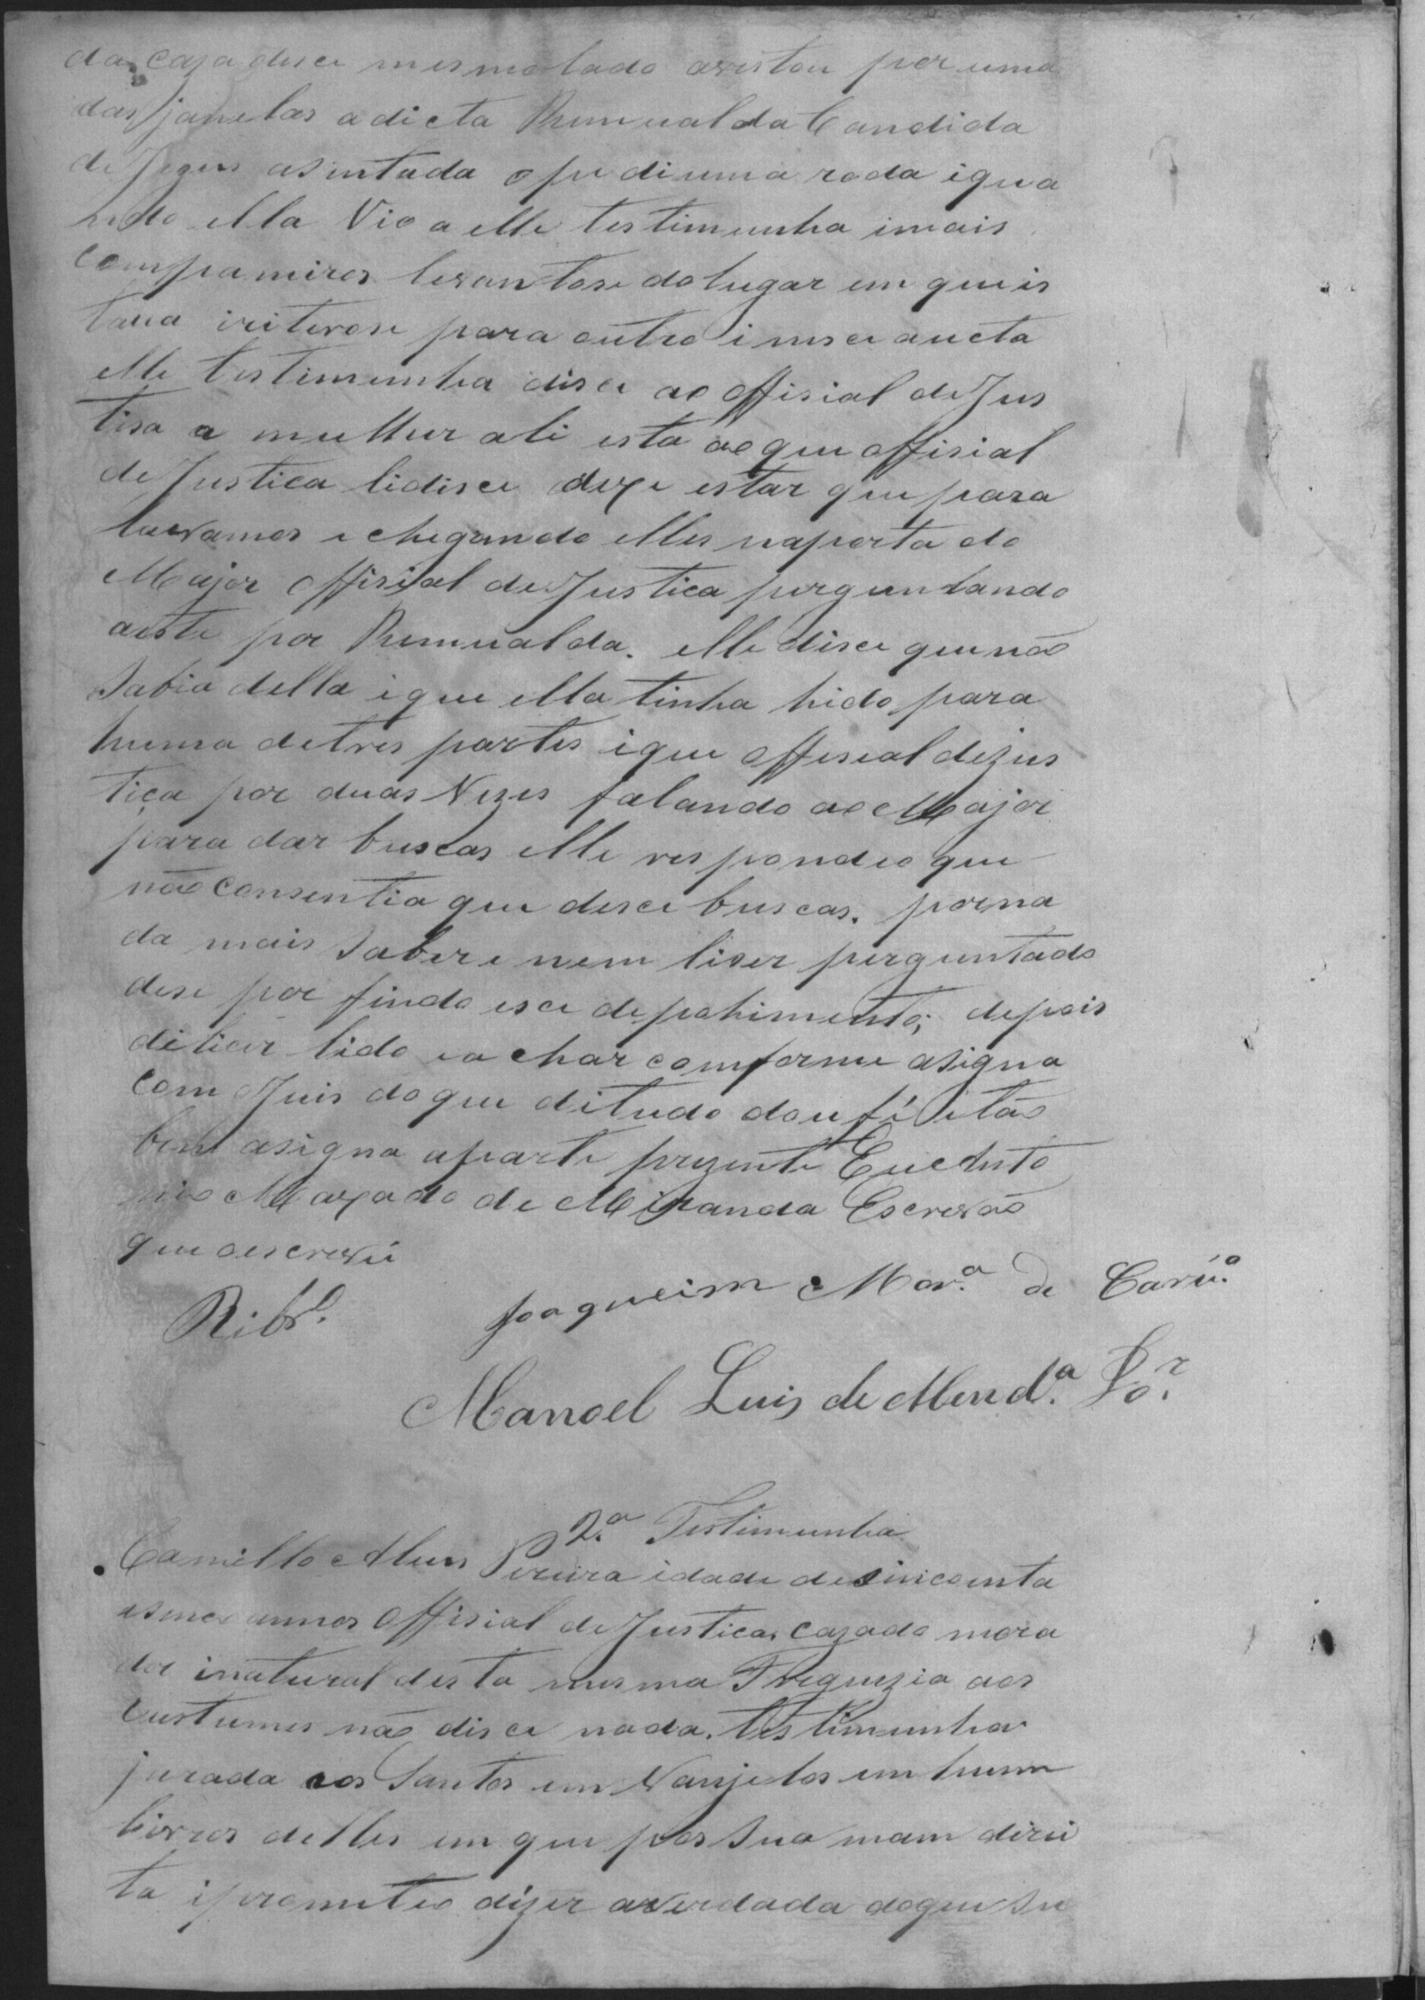 da caza desce mesmo lado avistou por uma
das janelas a dicta Rumualda Candida
de Jezus asentada o pe di uma roda i qua
ndo ella Vio a elle testimunha i mais
companniros levantose do lugar em que is
tava i ritirose para outro i nesce aucto
elle testimunha disce ao offisial de Jus
tisa a mulhur ali esta ao que offisial
de Justica lidisce deixe estar que para
la vamos e chegando elles na porta do
Major offisial de Justica purguntando
a este por Rumualda. elle disce que não
Sabia della i que ella tinha hido para
huma de tres partes i que offisial de jus
tiça por duas Vezes falando ao Major
para dar buscas elle respondeo que
não consentia que desce buscas. por na
da mais Saber e nem li ser purguntado
dese por findo esce depohimento; depois
di li ser lido e achar comforme asigna
com Juis do que di tudo dou fé i tão
bem asigna a parte prezente Eu Anto
nio Maxado de Miranda Escrivão
que o escrevi
Ribr.º Joaqueim Mor.ª de Carv.º
Manoel Luis de Mend.ª J.or
2.ª Testimunha
Camillo Alves Pereira idade de sincoenta
e sinco annos Offisial de Justica, cazado mora
dor i natural desta mesma Freguezia aos
Custumes não disce nada. testimunha
jurada aos Santos em Vanjelos em hum
livros delles em que pos Sua mam direi
ta i prometeo dizer a verdada do que Su